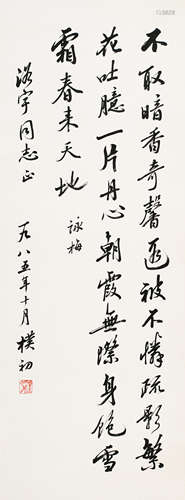 不取暗香奇馨遐被不憐疏影繁
花吐臆一片丹心朝霞無際身飽雪
霜春来天地
詠梅
洛宇同志正
一九八五年十月樸初